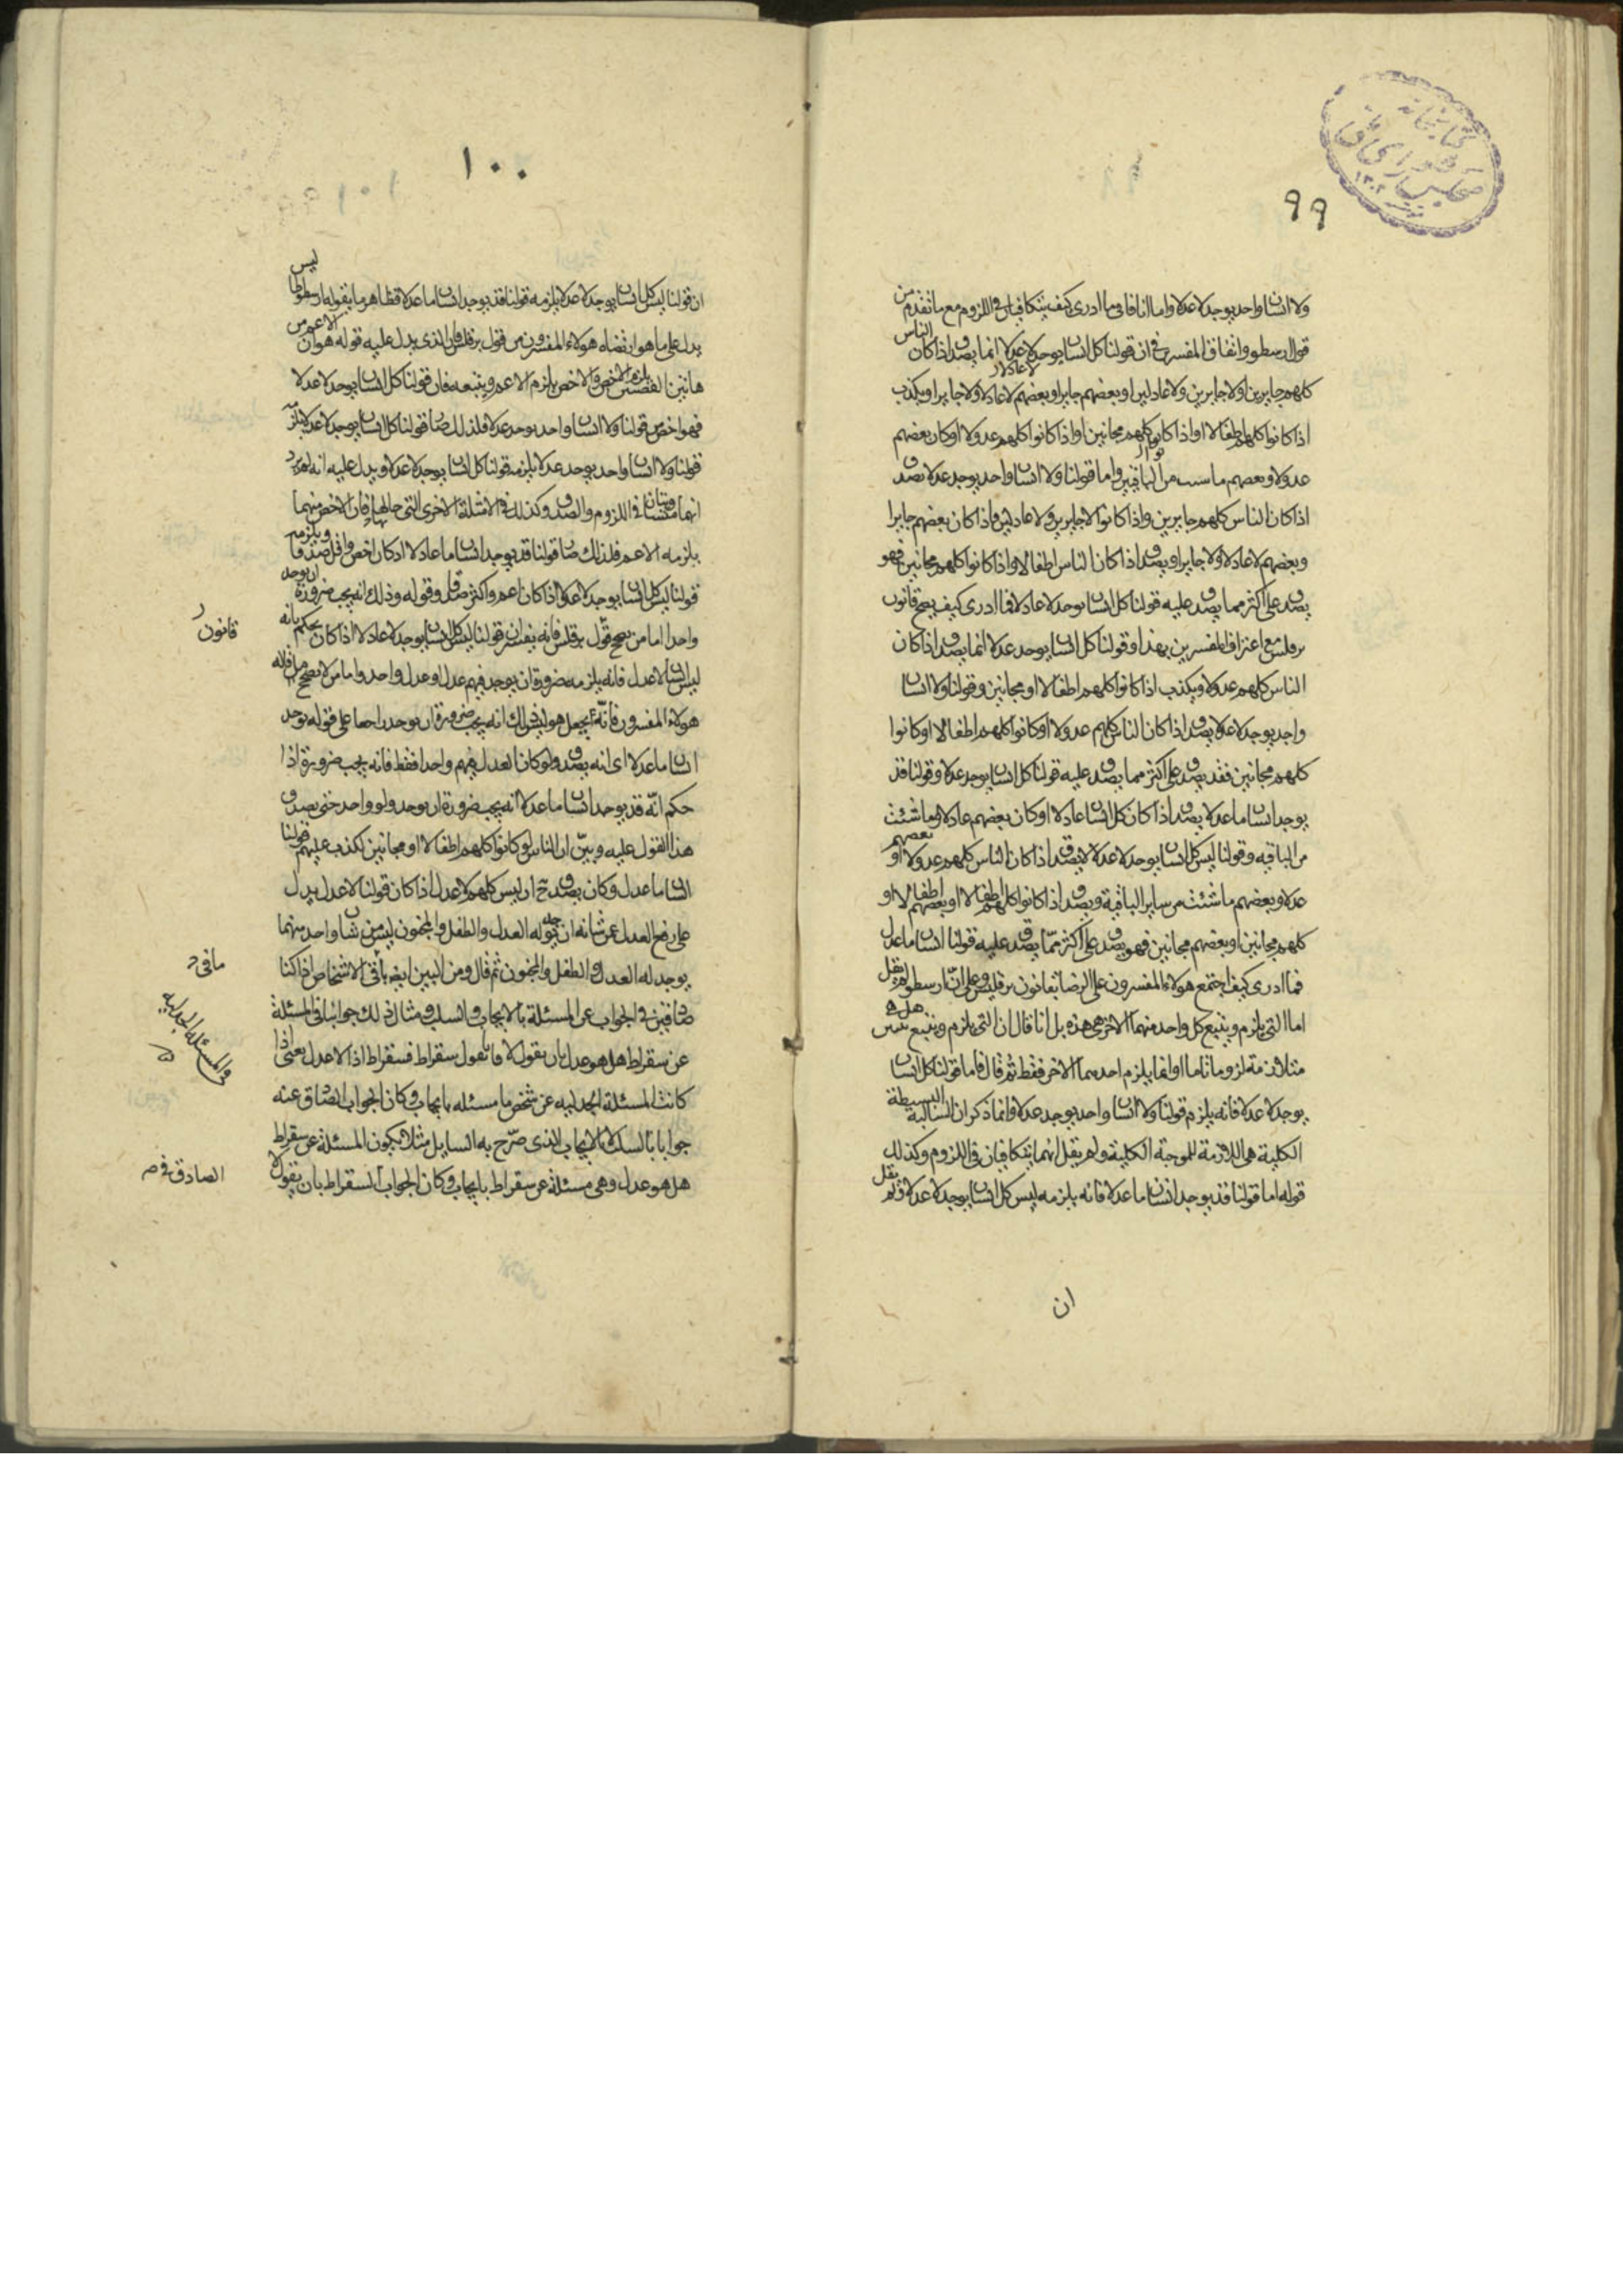 ٩٩
ولا انسان واحد يوجد لا عدلا واما انا فاني ما ادري كيف يتكافيان في اللزوم مع ما تقدم من
قول ارسطو واتفاق المفسرين في ان قولنا كل انسان يوجد لا عدلا انما يصدق اذا كان الناس
كلهم جايرين اولا جايرين ولا عادلين او بعضهم جايرا وبعضهم لا عادلا ولا جايرا ويكذب
اذا كانوا كلهم اطفالا او اذا كانوا كلهم مجانين او اذا كانوا كلهم عدولا او كان بعضهم
عدولا وبعضهم ما شئت من الباقين واما قولنا ولا انسان واحد يوجد عدلا يصدق
اذا كان الناس كلهم جايرين واذا كانوا لا جايرين ولا عادلين واذا كان بعضهم جايرا
وبعضهم لا عادلا ولا جايرا ويصدق اذا كان الناس اطفالا واذا كانوا كلهم مجانين فهو
يصدق على اكثر مما يصدق عليه قولنا كل انسان يوجد لا عادلا فما ادري كيف يصح قانون
برقلس مع اعتراف المفسرين بهذا وقولنا كل انسان يوجد عدلا انما يصدق اذا كان
الناس كلهم عدولا ويكذب اذا كانوا كلهم اطفالا او مجانين وقولنا ولا انسان
واحد يوجد لا عدلا يصدق اذا كان الناس كلهم عدولا او كانوا كلهم اطفالا او كانوا
كلهم مجانين فقد يصدق على اكثر مما يصدق عليه قولنا كل انسان يوجد عدلا وقولنا قد
يوجد انسان ما عدلا يصدق اذا كان كل انسان عادلا او كان بعضهم عادلا وما شئت
من الباقيه وقولنا ليس كل انسان يوجد لا عدلا يصدق اذا كان الناس كلهم عدولا او بعضهم
عدلا وبعضهم ما شئت من ساير الباقية ويصدق اذا كانوا كلهم اطفالا او بعضهم اطفالا او
كلهم مجانين او بعضهم مجانين فهو يصدق على اكثر مما يصدق عليه قولنا انسان ما عدل
فما ادري كيف اجتمع هولاء المفسرون على الرضا بقانون برقلس وعلى ان ارسطو لم يقل
اما التي يلزم ويتبع كل واحد منهما الاخر هي هذه بل انما قال ان التي يلزم ويتبع
متلازمة لزوما تاما او انما يلزم احدهما الاخر فقط ثم قال فاما قولنا كل انسان
يوجد لا عدلا فانه يلزم قولنا ولا انسان واحد يوجد عدلا وانما ذكر ان السالبة البسيطة
الكلية هي اللازمة للموجبة الكلية ولم يقل انهما يتكافيان في اللزوم وكذلك
قوله اما قولنا قد يوجد انسان ما عدلا فانه يلزمه ليس كل انسان يوجد لا عدلا ولم يقل
ان
١٠٠
١٠١
ان قولنا ليس كل انسان يوجد لا عدلا يلزمه قولنا قد يوجد انسان ما عدلا فظاهر ما يقوله ارسطوطاليس
يدل على ما هو ارتضاه هولاء المفسرون من قول برقلس فان الذي يدل عليه قوله هو ان الاعم من
هاتين القضيتين يلزم الاخص والاخص يلزم الاعم ويتبعه فان قولنا كل انسان يوجد لا عدلا
فهو اخص من قولنا ولا انسان واحد يوجد عدلا فلذلك صار قولنا كل انسان يوجد لا عدلا يلزمه
قولنا ولا انسان واحد يوجد عدلا يلزمه قولنا كل انسان يوجد لا عدلا ويدل عليه انه لم يرد
انهما متساويتان في اللزوم والصدق وكذلك في الامثلة الاخرى التي حالها فان الاخص منهما
يلزمه الاعم فلذلك صار قولنا قد يوجد انسان ما عادلا اذ كان اخص واقل صدقا ويلزمه
قولنا ليس كل انسان يوجد لا عدلا اذ كان اعم واكثر صدقا وقوله وذلك انه يجب ضرورة ان يوجد
واحدا اما من يصحح قول برقلس فانه يفسر ان قولنا ليس كل انسان يوجد لا عادلا اذا كان يحكم بانه
ليس انسان لا عدل فانه يلزمه ضرورة ان يوجد فيهم عدل او عدل واحد واما من لا يصحح ما قاله
هولاء المفسرون فانه يجعل هو ليس ذلك انه يجب ضرورة ان يوجد راجعا على قوله يوجد
انسان ما عدلا اي انه يصدق ولو كان العدل فيهم واحدا فقط فانه يجب ضرورة اذا
حكم انه قد يوجد انسان ما عدلا انه يجب ضرورة ان يوجد ولو واحد حتى يصدق
هذا القول عليه وبين ان الناس لو كانوا كلهم اطفالا او مجانين لكذب عليهم قولنا
انسان ما عدل وكان يصدق ح ان ليس كلهم لا عدل اذ كان قولنا لا عدل يدل
على رفع العدل عن شانه ان يوجد له العدل والطفل والمجنون ليس من شان واحد منهما
يوجد له العدل والطفل والمجنون ثم قال ومن البين ايضا في الاشخاص اذا كنا
صادقين في الجواب عن المسئلة بالايجاب والسلب ومثال ذلك جوابنا في المسئلة
عن سقراط هل هو عدل بان نقول لا فانا نقول سقراط فسقراط اذا لا عدل يعني اذا
كانت المسئلة الجدليه عن شخص ما مسئله بايجاب وكان الجواب الصادق عنه
جوابا بالسلب لا بالايجاب الذي صرح به السايل مثلا بكون المسئلة عن سقراط
هل هو عدل وهي مسئلة عن سقراط بايجاب وكان الجواب لسقراط بان يقول لا
قانون
ما في
في المسئلة الجدليه
الصادق في